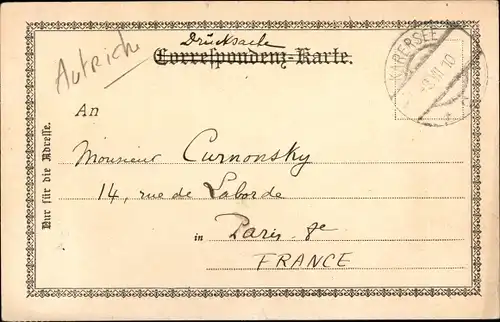 Drucksache
Correspondenz-Karte.
Autriche
KARERSEE
An
Monsieur Curnonsky
14, rue de Laborde
in Paris 8e
FRANCE
Nur für die Adresse.